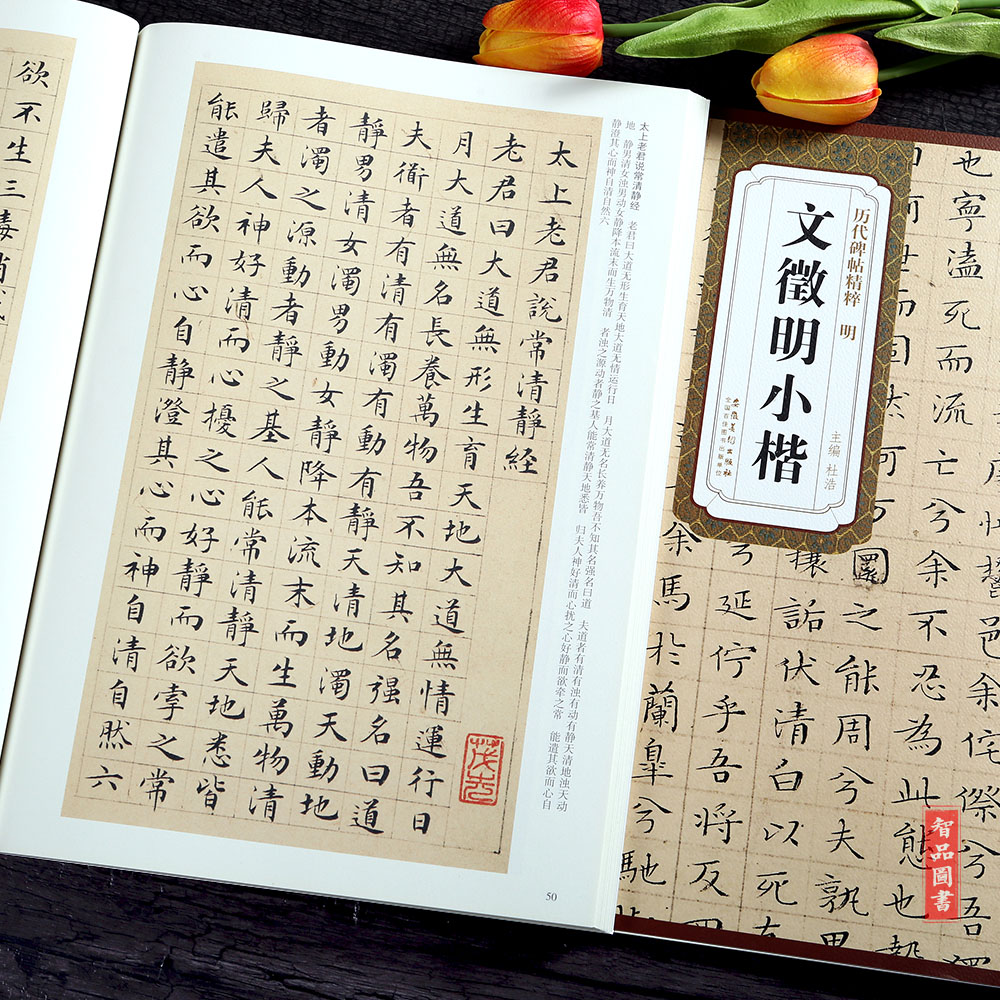 欲不生三毒消
太上老君說常清靜經
老君曰大道無形生育天地大道無情運行日
月大道無名長養萬物吾不知其名强名曰道
夫衜者有清有濁有動有靜天清地濁天動地
靜男清女濁男動女靜降本流末而生萬物清
者濁之源動者靜之基人能常清靜天地悉皆
歸夫人神好清而心擾之心好靜而欲牽之常
能遣其欲而心自靜澄其心而神自清自然六
太上老君说常清静经 老君曰大道无形生育天地大道无情运行日 月大道无名长养万物吾不知其名强名曰道 夫道者有清有浊有动有静天清地浊天动
地 静男清女浊男动女静降本流末而生万物清 者浊之源动者静之基人能常清静天地悉皆 归夫人神好清而心扰之心好静而欲牵之常 能遣其欲而心自
静澄其心而神自清自然六
50
历代碑帖精粹 明
文徵明小楷
主编 杜浩
安徽美术出版社
全国百佳图书出版单位
余侘傺兮吾獨
也寧溘死而流亡兮余不忍為此態也
何世而固然
何方圜之能周兮夫孰
攘詬伏清白以死
兮延佇乎吾將反
余馬於蘭皋兮馳
智品圖書